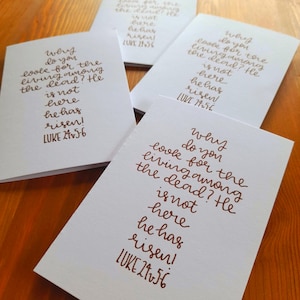 why
do you
look for the
living among
the dead? He
is not
here
he has
risen!
LUKE 24v56
is not
here
he has
risen!
LUKE 24v56
why
do you
look for the
living among
the dead? He
is not
here
he has
risen!
LUKE 24v56
why
do you
look for the
living among
the dead? He
is not
here
he has
risen!
LUKE 24v56